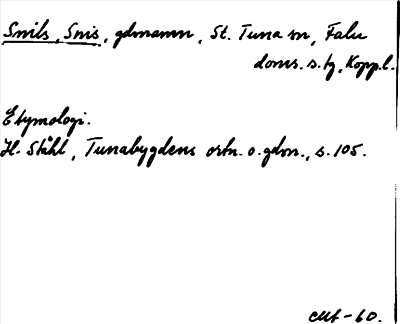 Snils, Snis, gdmamn, St. Tuna sn, Falu
doms. s. tg, Kopp. l.
Etymologi.
H. Ståhl, Tunabygdens ortn. o. gdsn., s. 105.
CMf-60.